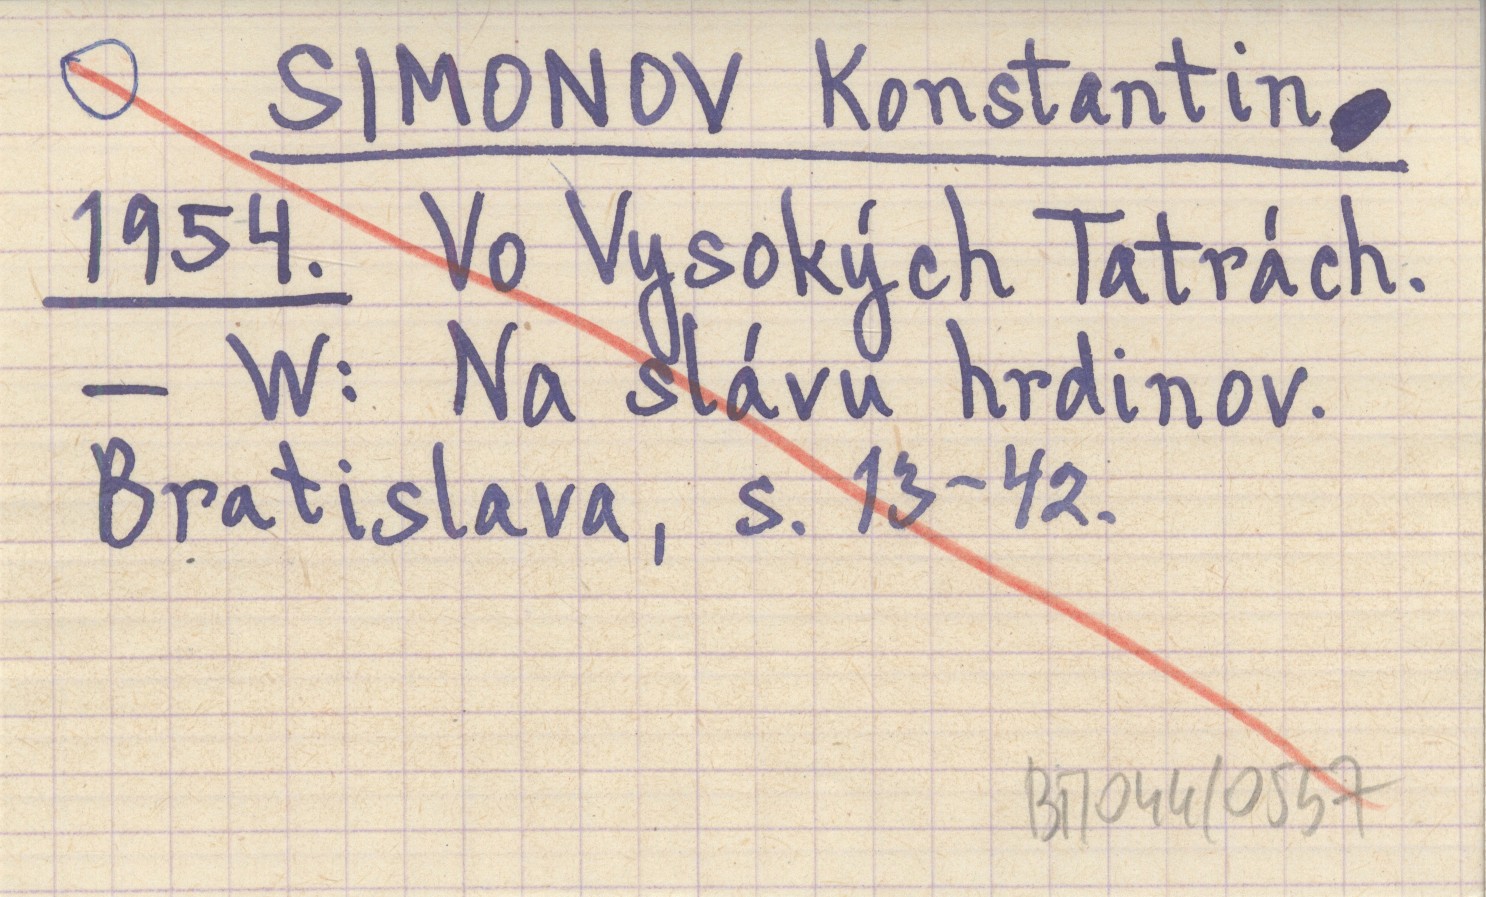 SIMONOV Konstantin.
1954. Vo Vysokých Tatrách.
— W: Na slávu hrdinov.
Bratislava, s. 13-42.